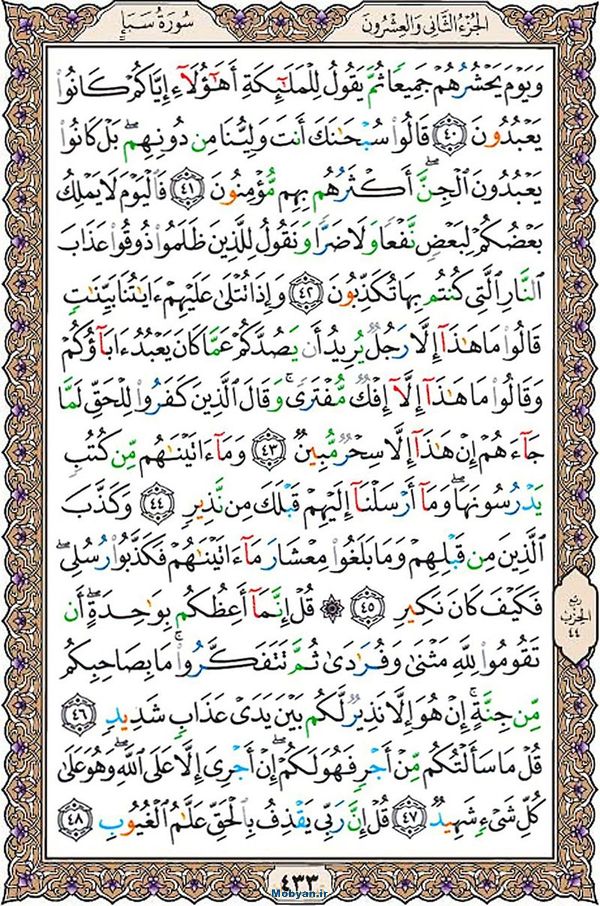 سُورَةُ سَبَإٍ
الجُزْءُ الثَّانِی وَالعِشْرُونَ
وَيَوْمَ يَحْشُرُهُمْ جَمِيعًا ثُمَّ يَقُولُ لِلْمَلَٰٓئِكَةِ أَهَٰٓؤُلَآءِ إِيَّاكُمْ كَانُوا۟
يَعْبُدُونَ ﴿٤٠﴾ قَالُوا۟ سُبْحَٰنَكَ أَنتَ وَلِيُّنَا مِن دُونِهِم ۖ بَلْ كَانُوا۟
يَعْبُدُونَ ٱلْجِنَّ ۖ أَكْثَرُهُم بِهِم مُّؤْمِنُونَ ﴿٤١﴾ فَٱلْيَوْمَ لَا يَمْلِكُ
بَعْضُكُمْ لِبَعْضٍ نَّفْعًا وَلَا ضَرًّا وَنَقُولُ لِلَّذِينَ ظَلَمُوا۟ ذُوقُوا۟ عَذَابَ
ٱلنَّارِ ٱلَّتِي كُنتُم بِهَا تُكَذِّبُونَ ﴿٤٢﴾ وَإِذَا تُتْلَىٰ عَلَيْهِمْ ءَايَٰتُنَا بَيِّنَٰتٍ
قَالُوا۟ مَا هَٰذَآ إِلَّا رَجُلٌ يُرِيدُ أَن يَصُدَّكُمْ عَمَّا كَانَ يَعْبُدُ ءَابَآؤُكُمْ
وَقَالُوا۟ مَا هَٰذَآ إِلَّآ إِفْكٌ مُّفْتَرًى ۚ وَقَالَ ٱلَّذِينَ كَفَرُوا۟ لِلْحَقِّ لَمَّا
جَآءَهُمْ إِنْ هَٰذَآ إِلَّا سِحْرٌ مُّبِينٌ ﴿٤٣﴾ وَمَآ ءَاتَيْنَٰهُم مِّن كُتُبٍ
يَدْرُسُونَهَا ۖ وَمَآ أَرْسَلْنَآ إِلَيْهِمْ قَبْلَكَ مِن نَّذِيرٍ ﴿٤٤﴾ وَكَذَّبَ
ٱلَّذِينَ مِن قَبْلِهِمْ وَمَا بَلَغُوا۟ مِعْشَارَ مَآ ءَاتَيْنَٰهُمْ فَكَذَّبُوا۟ رُسُلِي ۖ
فَكَيْفَ كَانَ نَكِيرِ ﴿٤٥﴾ ۞ قُلْ إِنَّمَآ أَعِظُكُم بِوَٰحِدَةٍ ۖ أَن
تَقُومُوا۟ لِلَّهِ مَثْنَىٰ وَفُرَٰدَىٰ ثُمَّ تَتَفَكَّرُوا۟ ۚ مَا بِصَاحِبِكُم
مِّن جِنَّةٍ ۚ إِنْ هُوَ إِلَّا نَذِيرٌ لَّكُم بَيْنَ يَدَىْ عَذَابٍ شَدِيدٍ ﴿٤٦﴾
قُلْ مَا سَأَلْتُكُم مِّنْ أَجْرٍ فَهُوَ لَكُمْ ۖ إِنْ أَجْرِىَ إِلَّا عَلَى ٱللَّهِ ۖ وَهُوَ عَلَىٰ
كُلِّ شَىْءٍ شَهِيدٌ ﴿٤٧﴾ قُلْ إِنَّ رَبِّي يَقْذِفُ بِٱلْحَقِّ عَلَّٰمُ ٱلْغُيُوبِ ﴿٤٨﴾
ربع
الحزب
٤٤
٤٣٣
Mobyan.ir